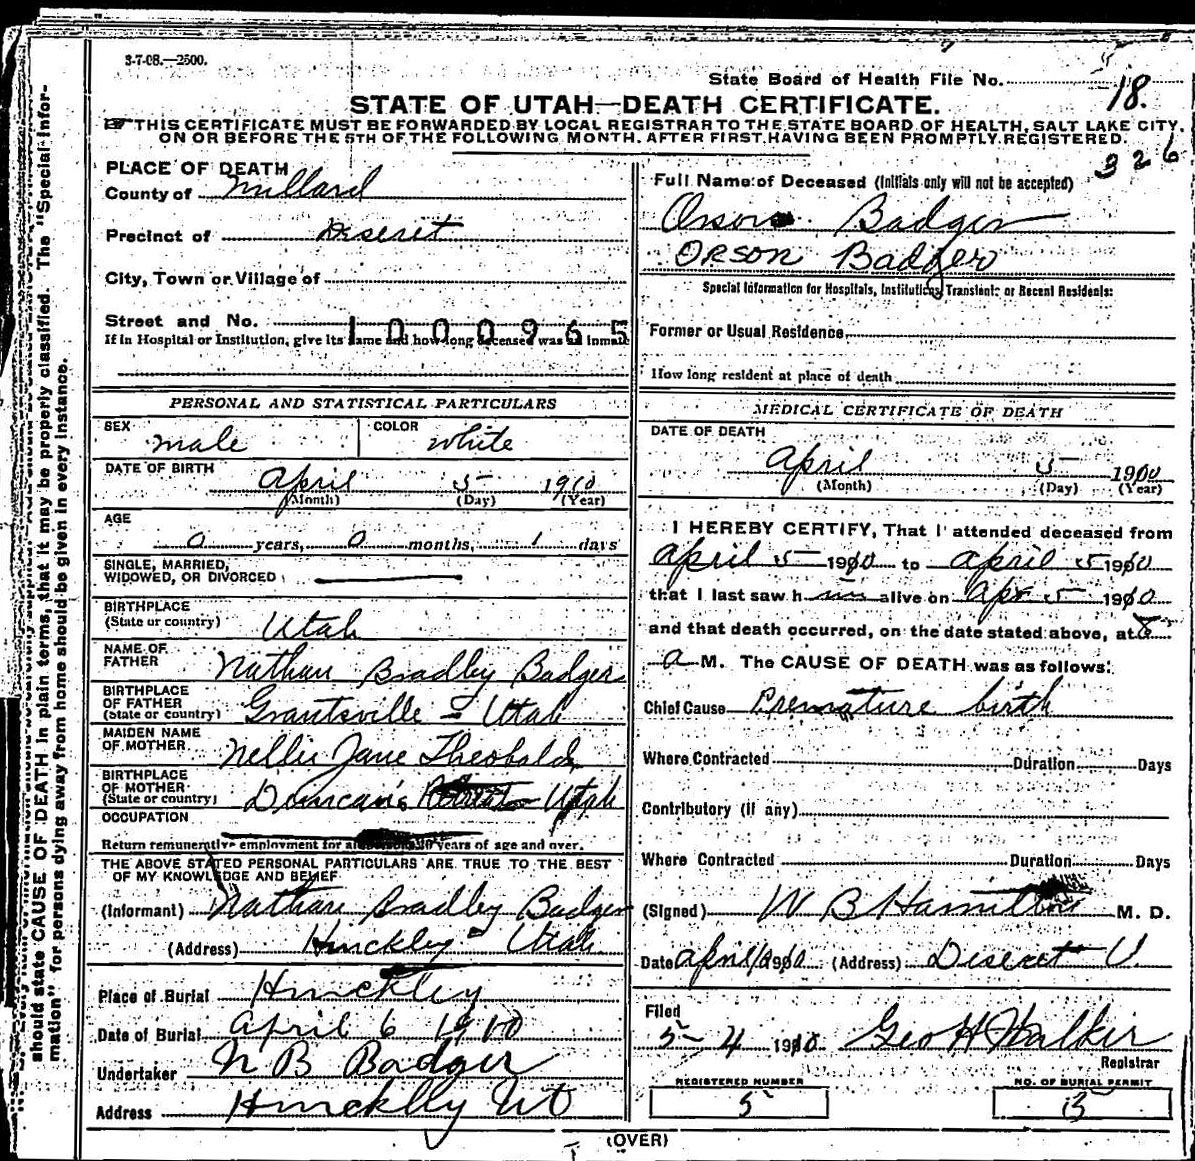 3-7-08.—2500.
State Board of Health File No. 18.
STATE OF UTAH—DEATH CERTIFICATE.
THIS CERTIFICATE MUST BE FORWARDED BY LOCAL REGISTRAR TO THE STATE BOARD OF HEALTH, SALT LAKE CITY,
ON OR BEFORE THE 5TH OF THE FOLLOWING MONTH, AFTER FIRST HAVING BEEN PROMPTLY REGISTERED.
326
PLACE OF DEATH
County of Millard
Precinct of Deseret
City, Town or Village of
Street and No.
1000965
If in Hospital or Institution, give its name and how long deceased was an inmate
Full Name of Deceased (Initials only will not be accepted)
Orson Badger
ORSON Badger
Special Information for Hospitals, Institutions, Transient, or Recent Residents:
Former or Usual Residence
How long resident at place of death
PERSONAL AND STATISTICAL PARTICULARS
SEX male COLOR white
DATE OF BIRTH
April 5 1910
(Month) (Day) (Year)
AGE
0 years, 0 months, 1 days
SINGLE, MARRIED,
WIDOWED, OR DIVORCED
BIRTHPLACE
(State or country) Utah
NAME OF
FATHER Nathan Bradley Badger
BIRTHPLACE
OF FATHER
(State or country) Grantsville - Utah
MAIDEN NAME
OF MOTHER Nellie Jane Theobald
BIRTHPLACE
OF MOTHER
(State or country) Duncan's Retreat Utah
OCCUPATION
Return remunerative employment for all persons 10 years of age and over.
THE ABOVE STATED PERSONAL PARTICULARS ARE TRUE TO THE BEST
OF MY KNOWLEDGE AND BELIEF
(Informant) Nathan Bradley Badger
(Address) Hinckley - Utah
Place of Burial Hinckley
Date of Burial April 6 1910
Undertaker N B Badger
Address Hinckley Ut
MEDICAL CERTIFICATE OF DEATH
DATE OF DEATH
April 5 1910
(Month) (Day) (Year)
I HEREBY CERTIFY, That I attended deceased from
April 5 1910 to April 5 1910
that I last saw him alive on Apr 5 1910
and that death occurred, on the date stated above, at 8
a M. The CAUSE OF DEATH was as follows:
Chief Cause Premature birth
Where Contracted Duration Days
Contributory (if any)
Where Contracted Duration Days
(Signed) W B Hamilton M. D.
Date April 1910 (Address) Deseret U.
Filed
5-4 1910 Geo H Walker
Registrar
REGISTERED NUMBER
5
NO. OF BURIAL PERMIT
(OVER)
should state CAUSE OF DEATH in plain terms, that it may be properly classified. The "Special Infor-
mation" for persons dying away from home should be given in every instance.